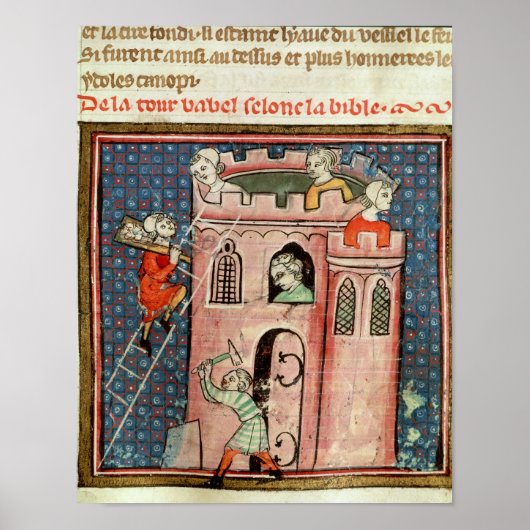 et la cire fondi. Il estaint lyaue du vessiel le feu
Si furent ainsi au dessus et plus honnerees les
ydoles canopi.
De la tour babel selonc la bible.